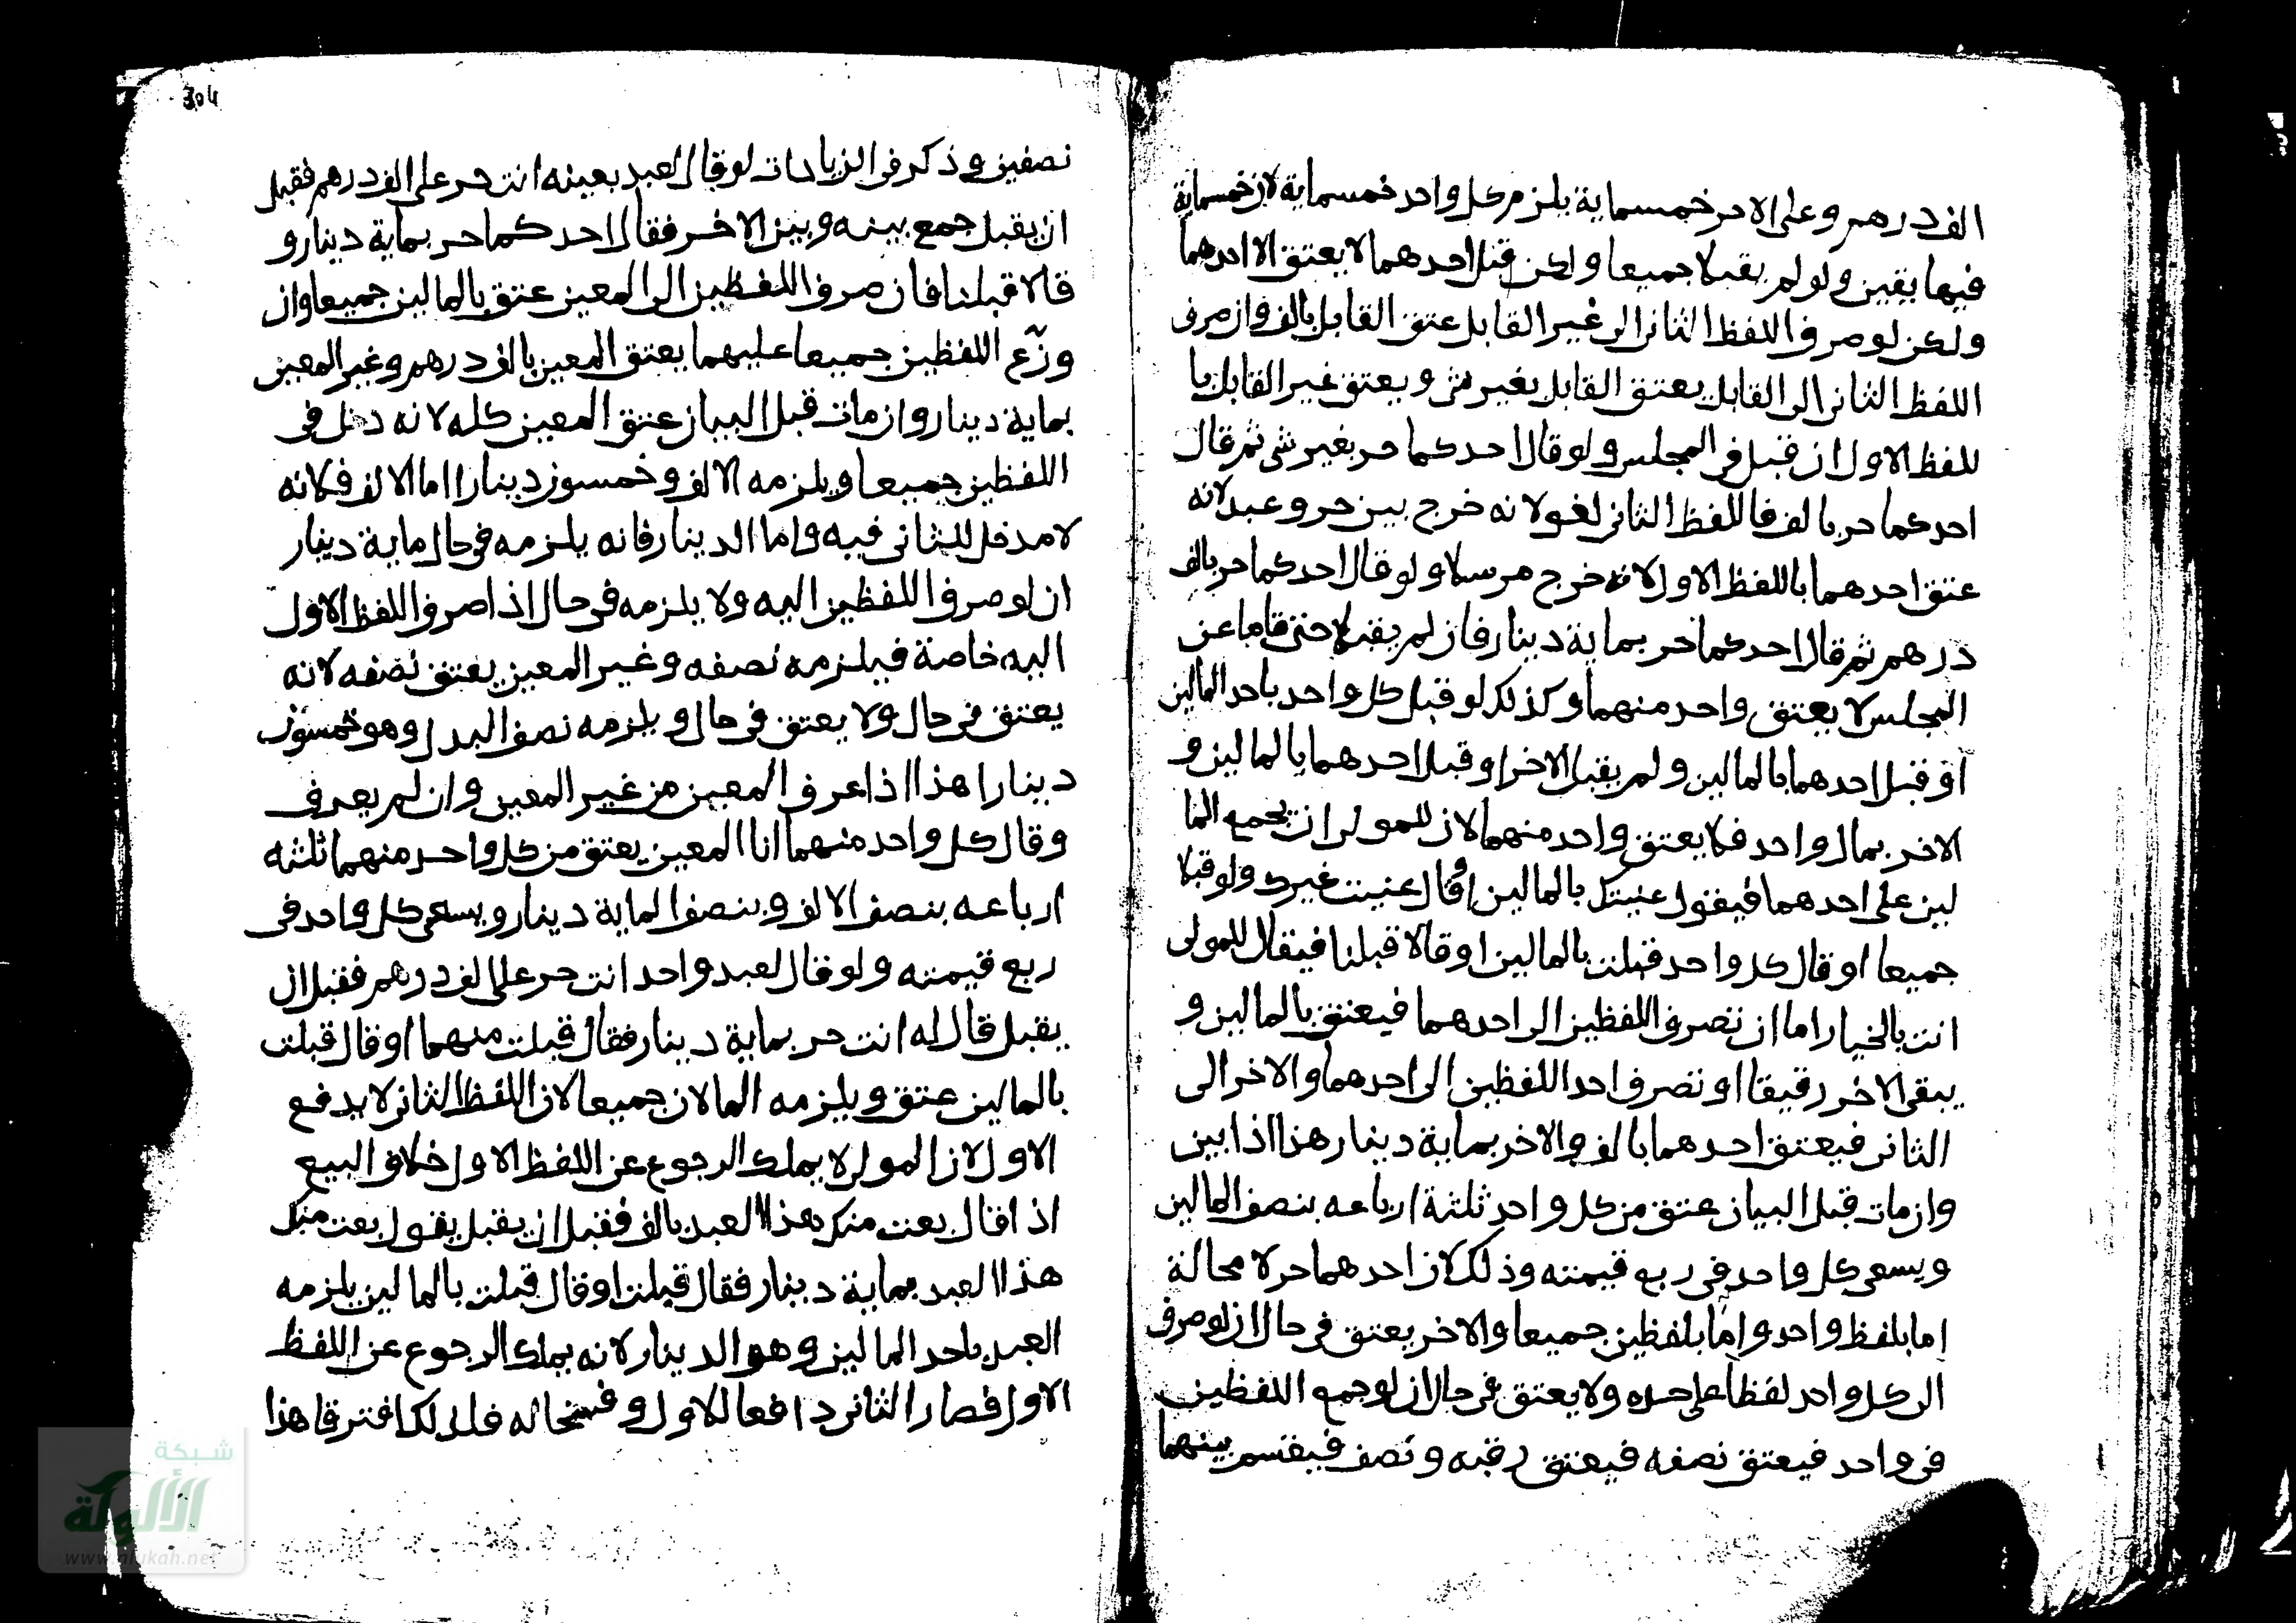 الف درهم وعلى الاخر خمسماية يلزم كل واحد خمسماية لان خمسماية
فيها يقين ولو لم يقبلا جميعا ولكن قبل احدهما لا يعتق الا احدهما
ولكن لو صرف اللفظ الثانى الى غير القابل عتق القابل بالف وان صرف
اللفظ الثانى الى القابل يعتق القابل بغير شى ويعتق غير القابل با
للفظ الاول ان قبل فى المجلس ولو قال احدكما حر بغير شى ثم قال
احدكما حر بالف فاللفظ الثانى لغو لانه خرج بين حر وعبد لانه
عتق احدهما باللفظ الاول لانه خرج مرسلا ولو قال احدكما حر بالف
درهم ثم قال احدكما حر بماية دينار فان لم يقبلا حتى قاما عن
المجلس لا يعتق واحد منهما وكذلك لو قبل كل واحد باحد المالين
او قبل احدهما بالمالين ولم يقبل الاخر او قبل احدهما بالمالين و
الاخر بمال واحد فلا يعتق واحد منهما لان للمولى ان يجمع الما
لين على احدهما فيقول عنيتك بالمالين او قال عنيت غيرك ولو قبلا
جميعا او قال كل واحد قبلت بالمالين او قالا قبلنا فيقال للمولى
انت بالخيار اما ان تصرف اللفظين الى احدهما فيعتق بالمالين و
يبقى الاخر رقيقا او تصرف احد اللفظين الى احدهما والاخر الى
الثانى فيعتق احدهما بالف والاخر بماية دينار هذا اذا بين
وان مات قبل البيان عتق من كل واحد ثلثة ارباعه بنصف المالين
ويسعى كل واحد فى ربع قيمته وذلك لان احدهما حر لا محالة
اما بلفظ واحد واما بلفظين جميعا والاخر يعتق فى حال ان لو صرف
الى كل واحد لفظا على حده ولا يعتق فى حال ان لو جمع اللفظين
فى واحد فيعتق نصفه فيعتق رقبه ونصف فيقسم بينهما
304
نصفين وذكر فى الزيادات لو قال لعبد بعينه انت حر على الف درهم فقبل
ان يقبل جمع بينه وبين الاخر فقال احدكما حر بماية دينار و
قالا قبلنا فان صرف اللفظين الى المعين عتق بالمالين جميعا وان
وزّع اللفظين جميعا عليهما يعتق المعين بالف درهم وغير المعين
بماية دينار وان مات قبل البيان عتق المعين كله لانه دخل فى
اللفظين جميعا ويلزمه الالف وخمسون دينارا اما الالف فلانه
لا مدخل للثانى فيه واما الدينار فانه يلزمه فى حال ماية دينار
ان لو صرف اللفظين اليه ولا يلزمه فى حال اذا صرف اللفظ الاول
اليه خاصة فيلزمه نصفه وغير المعين يعتق نصفه لانه
يعتق فى حال ولا يعتق فى حال ويلزمه نصف البدل وهو خمسون
دينارا هذا اذا عرف المعين من غير المعين وان لم يعرف
وقال كل واحد منهما انا المعين يعتق من كل واحد منهما ثلثه
ارباعه بنصف الالف وبنصف الماية دينار ويسعى كل واحد فى
ربع قيمته ولو قال لعبد واحد انت حر على الف درهم فقبل ان
يقبل قال له انت حر بماية دينار فقال قبلت منهما او قال قبلت
بالمالين عتق ويلزمه المالان جميعا لان اللفظ الثانى لا يدفع
الاول لان المولى لا يملك الرجوع عن اللفظ الاول خلاف البيع
اذا قال بعت منك هذا العبد بالف فقبل ان يقبل يقول بعت منك
هذا العبد بماية دينار فقال قبلت او قال قبلت بالمالين يلزمه
العبد باحد المالين وهو الدينار لانه يملك الرجوع عن اللفظ
الاول فصار الثانى دافعا للاول وفسخا له فلذلك افترقا هذا
شبكة
الألوكة
www.alukah.net